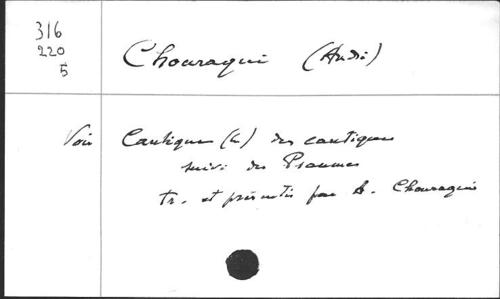 316
220
5
Chouraqui (André)
Voir Cantique (Le) des cantiques
suivi des Psaumes
tr. et présentés par A. Chouraqui